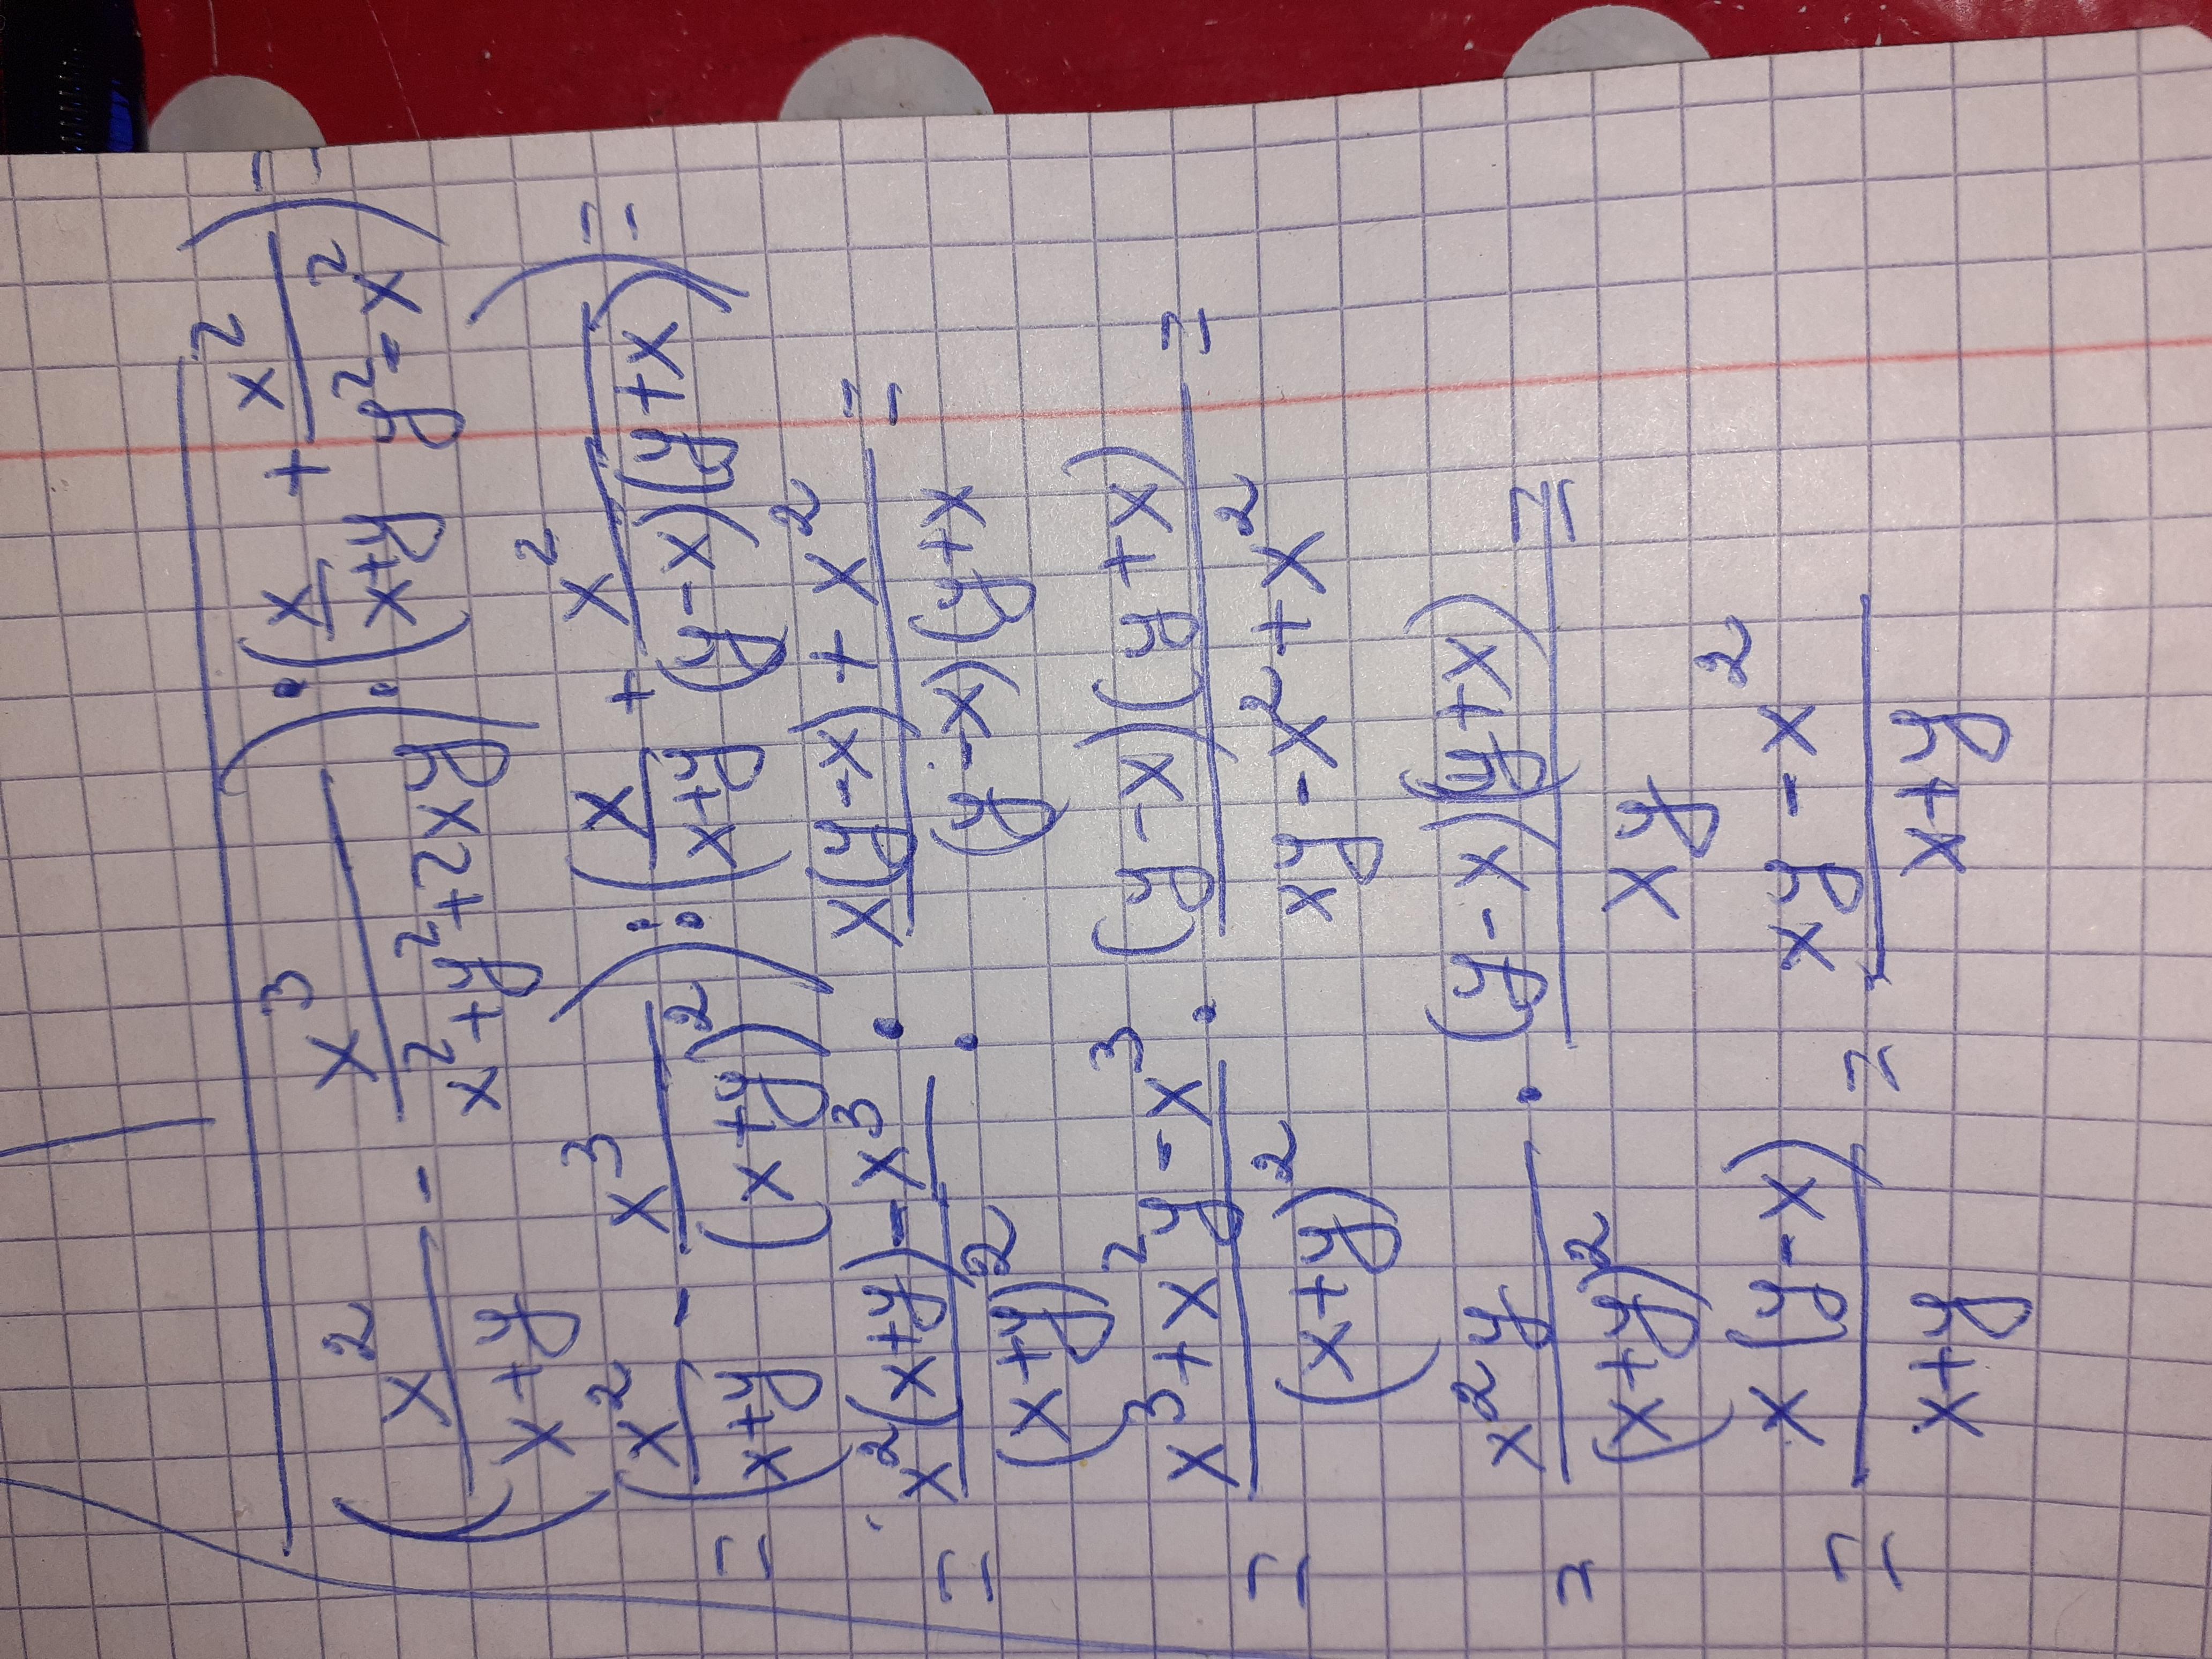 (x²/(x+y) - x³/(x²+y²+2xy)) : (x/(x+y) + x²/(y²-x²)) =
= (x²/(x+y) - x³/(x+y)²) : (x/(x+y) + x²/((y-x)(y+x))) =
= (x²(x+y)-x³)/(x+y)² : (x(y-x)+x²)/((y-x)(y+x) =
= (x³+x²y-x³)/(x+y)² · ((y-x)(y+x))/(xy-x²+x²) =
= x²y/(x+y)² · ((y-x)(y+x))/xy =
= x(y-x)/(x+y) = (xy-x²)/(x+y)